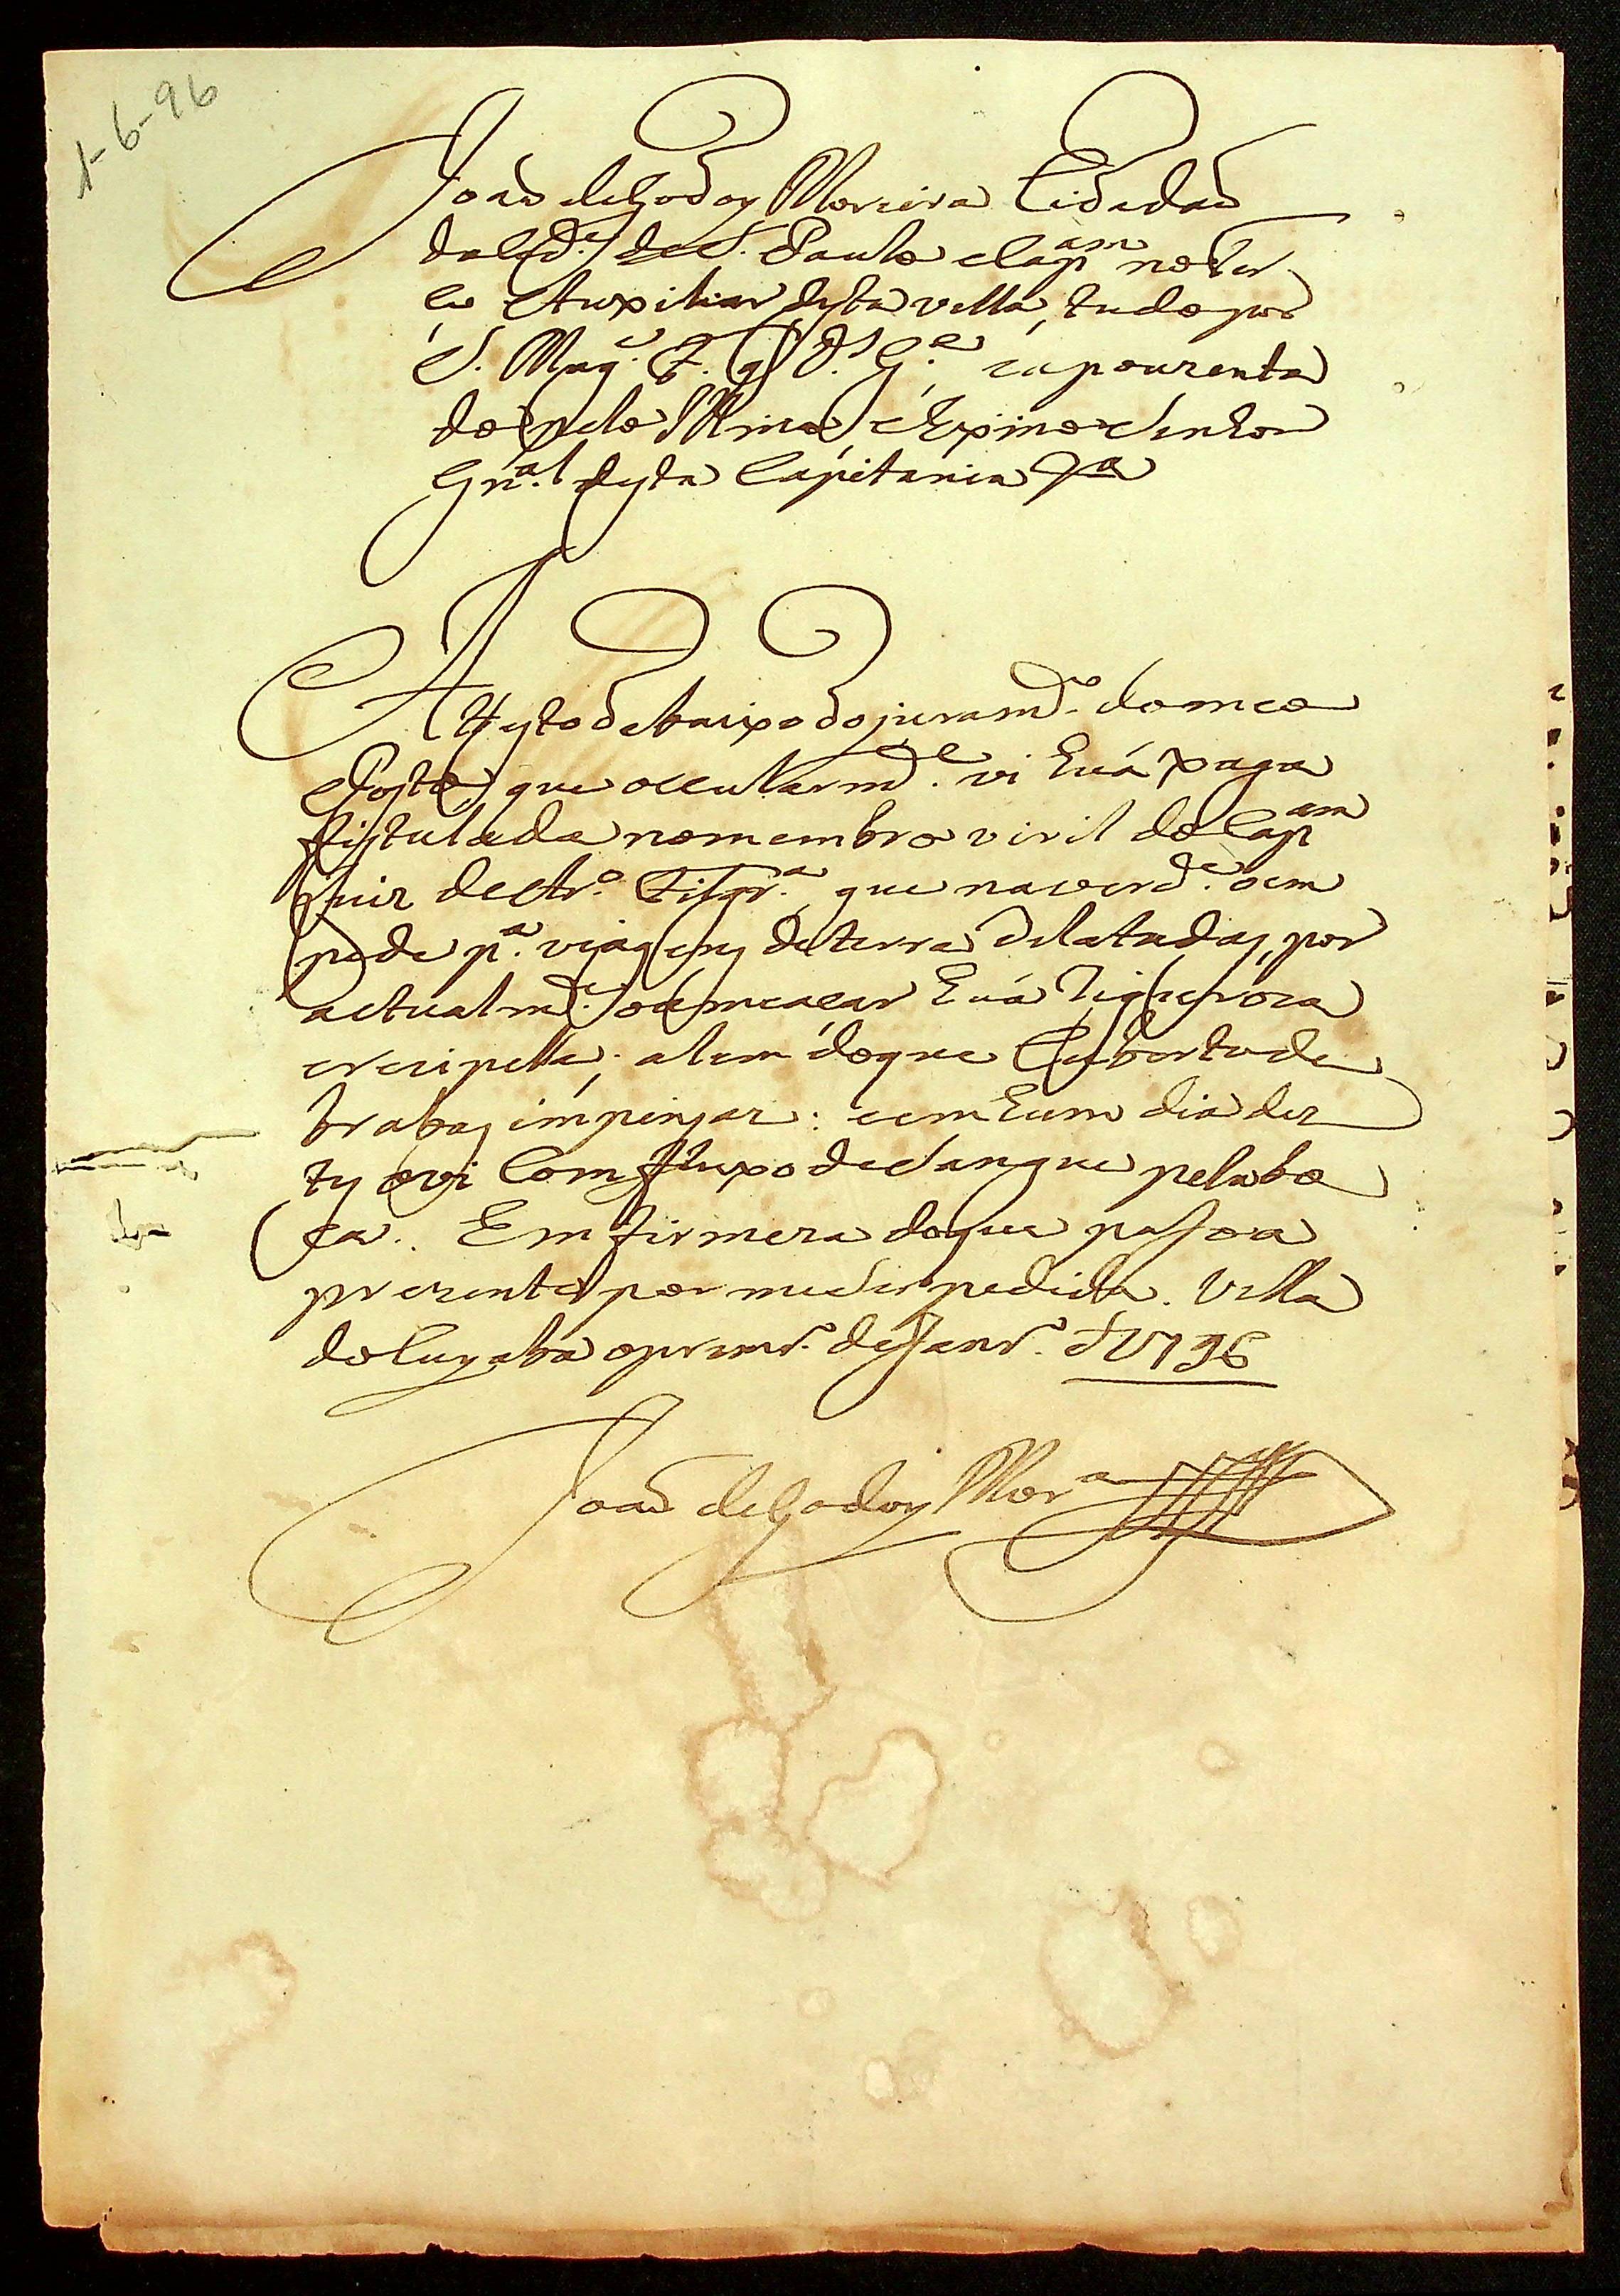 1-6-96
Joaõ deGodoy Moreira Cidadaõ
daCid.e deS. Paulo eCap.am noter
co Auxiliar desta villa, tudo por
S. Mag.e F. q D.s G.e, eapouzenta
do pelo Illmo, eExmo Senhor
Gn.al desta Capitania &a
Attesto debaixo do juram.to domeo
Posto que occularm.te vi huá xaga
fistulada nomembro viril doCap.am
Luiz deAr.o Filgr.a que naverd.e oem
pede p.a viagens deterra dilatadas, por
actualm.te oameaçar huá
erezipella; alem doque Cuberto de
brabas impinjas: eem hum dia des
tes ovi Com fluxo deSangue pelabo
ca. Em firmeza doque passoa
prezente por meser pedida. Villa
doCuyaba oprimr.o deJanr.o d 1796
Joaõ deGodoy Mor.a